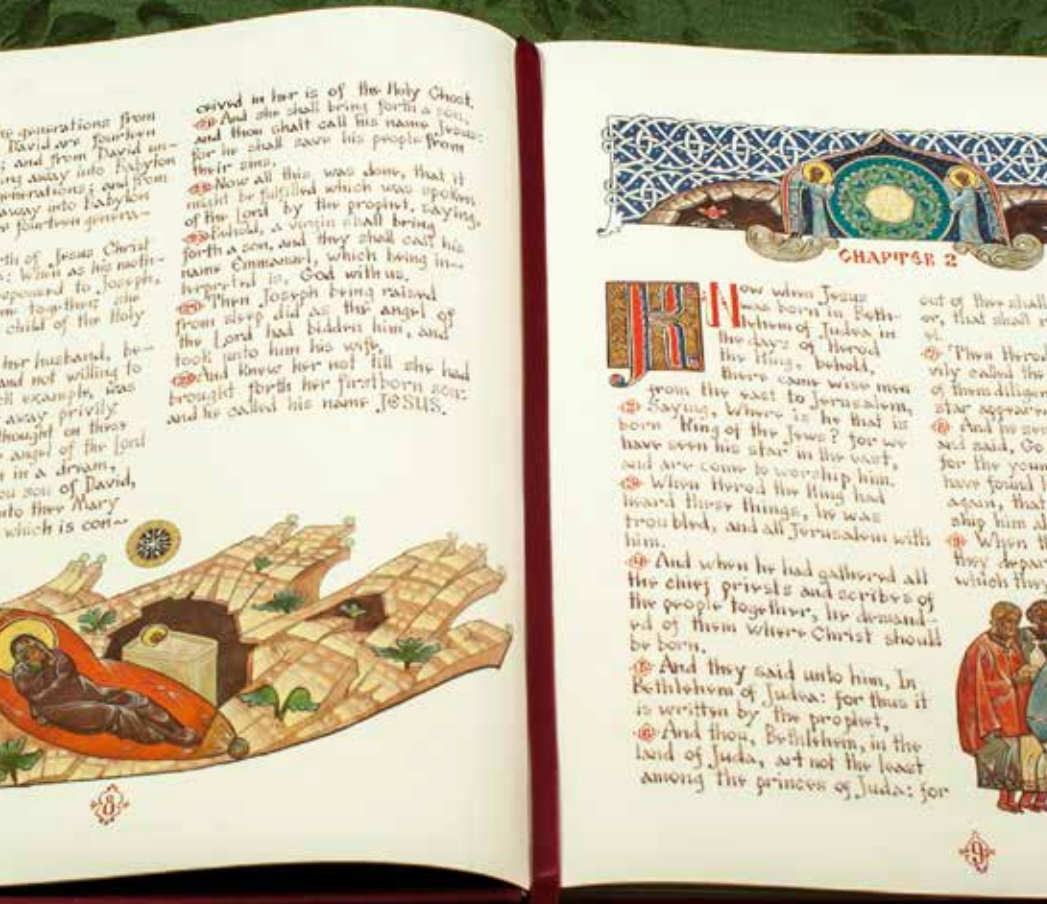 generations from
David are fourteen
; and from David un-
ing away into Babylon
generations; and from
away into Babylon
fourteen genera-
th of Jesus Christ
: When as his moth-
espoused to Joseph,
together she
child of the Holy
her husband, be-
and not willing to
example, was
away privily.
thought on these
angel of the Lord
in a dream,
son of David,
unto thee Mary
which is con-
ceived in her is of the Holy Ghost.
21 And she shall bring forth a son,
and thou shalt call his name Jesus:
for he shall save his people from
their sins.
22 Now all this was done, that it
might be fulfilled which was spoken
of the Lord by the prophet, saying,
23 Behold, a virgin shall bring
forth a son, and they shall call his
name Emmanuel, which being in-
terpreted is, God with us.
24 Then Joseph being raised
from sleep did as the angel of
the Lord had bidden him, and
took unto him his wife,
25 And knew her not till she had
brought forth her firstborn son:
and he called his name JESUS.
8
CHAPTER 2
Now when Jesus
was born in Beth-
lehem of Judea in
the days of Herod
the King, behold,
there came wise men
from the east to Jerusalem,
2 Saying, Where is he that is
born King of the Jews? for we
have seen his star in the east,
and are come to worship him.
3 When Herod the King had
heard these things, he was
troubled, and all Jerusalem with
him.
4 And when he had gathered all
the chief priests and scribes of
the people together, he demand-
ed of them where Christ should
be born.
5 And they said unto him, In
Bethlehem of Judea: for thus it
is written by the prophet,
6 And thou, Bethlehem, in the
land of Juda, art not the least
among the princes of Juda: for
out of thee shall
or, that shall
7 Then Herod
vily called the
of them diligen
star appeare
8 And he sen
and said, Go
for the youn
have found
again, that
ship him al
9 When th
they depar
which they
9